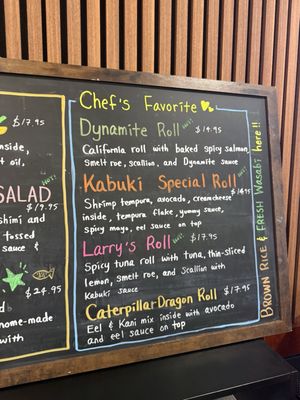 $17.95
inside,
t oil,
HOT!
SALAD
$19.95
shimi and
tossed
sauce &
HOT!
$24.95
home-made
with
Chef's Favorite
Dynamite Roll HOT! $14.95
California roll with baked spicy salmon,
Smelt roe, scallion, and Dynamite sauce
Kabuki Special Roll HOT!
$16.95
Shrimp tempura, avocado, creamcheese
inside, tempura flake, yummy sauce,
spicy mayo, eel sauce on top
Larry's Roll HOT! $17.95
Spicy tuna roll with tuna, thin-sliced
lemon, smelt roe, and Scallion with
Kabuki sauce
Caterpillar-Dragon Roll $17.95
Eel & Kani mix inside with avocado
and eel sauce on top
BROWN RICE & FRESH WASABI here!!